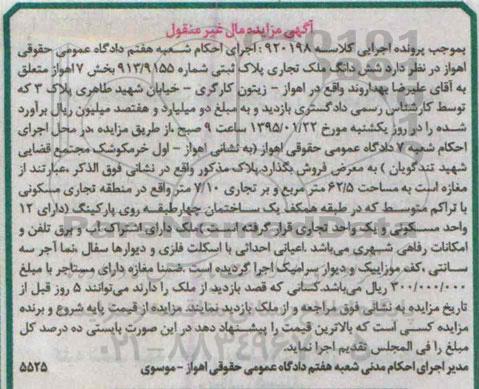 آگهی مزایده مال غیر منقول
بموجب پرونده اجرایی کلاسه ۹۲۰۱۹۸؛ اجرای احکام شعبه هفتم دادگاه عمومی حقوقی
اهواز در نظر دارد شش دانگ ملک تجاری پلاک ثبتی شماره ۹۱۳/۹۱۵۵ بخش ۷ اهواز متعلق
به آقای علیرضا بهداروند واقع در اهواز - زیتون کارگری - خیابان شهید طاهری پلاک ۳ که
توسط کارشناس رسمی دادگستری بازدید و به مبلغ دو میلیارد و هفتصد میلیون ریال برآورد
شده را در روز یکشنبه مورخ ۱۳۹۵/۰۱/۲۲ ساعت ۹ صبح ،از طریق مزایده ،در محل اجرای
احکام شعبه ۷ دادگاه عمومی حقوقی اهواز (به نشانی اهواز - اول خرمکوشک مجتمع قضایی
شهید تندگویان ) به معرض فروش بگذارد.پلاک مذکور واقع در نشانی فوق الذکر ،عبارتند از
مغازه است به مساحت ۶۲/۵ متر مربع و بر تجاری ۷/۱۰ متر واقع در منطقه تجاری مسکونی
با تراکم متوسط که در طبقه همکف یک ساختمان چهارطبقه روی پارکینگ (دارای ۱۲
واحد مسکونی و یک واحد تجاری قرار گرفته است.)ملک دارای اشتراک آب و برق تلفن و
امکانات رفاهی شهری می‌باشد .اعیانی احداثی با اسکلت فلزی و دیوارها سفال ،نما آجر سه
سانتی ،کف موزاییک و دیوار سرامیک اجرا گردیده است .ضمنا مغازه دارای مستاجر با مبلغ
۳۰۰/۰۰۰/۰۰۰ ریال می‌باشد.کسانی که قصد بازدید از ملک را دارند می‌توانند ۵ روز قبل از
تاریخ مزایده به نشانی فوق مراجعه و از ملک بازدید نمایند. مزایده از قیمت پایه شروع و برنده
مزایده کسی است که بالاترین قیمت را پیشنهاد دهد در این صورت بایستی ده درصد کل
مبلغ را فی المجلس تقدیم اجرا نماید.
مدیر اجرای احکام مدنی شعبه هفتم دادگاه عمومی حقوقی اهواز - موسوی ۵۵۲۵